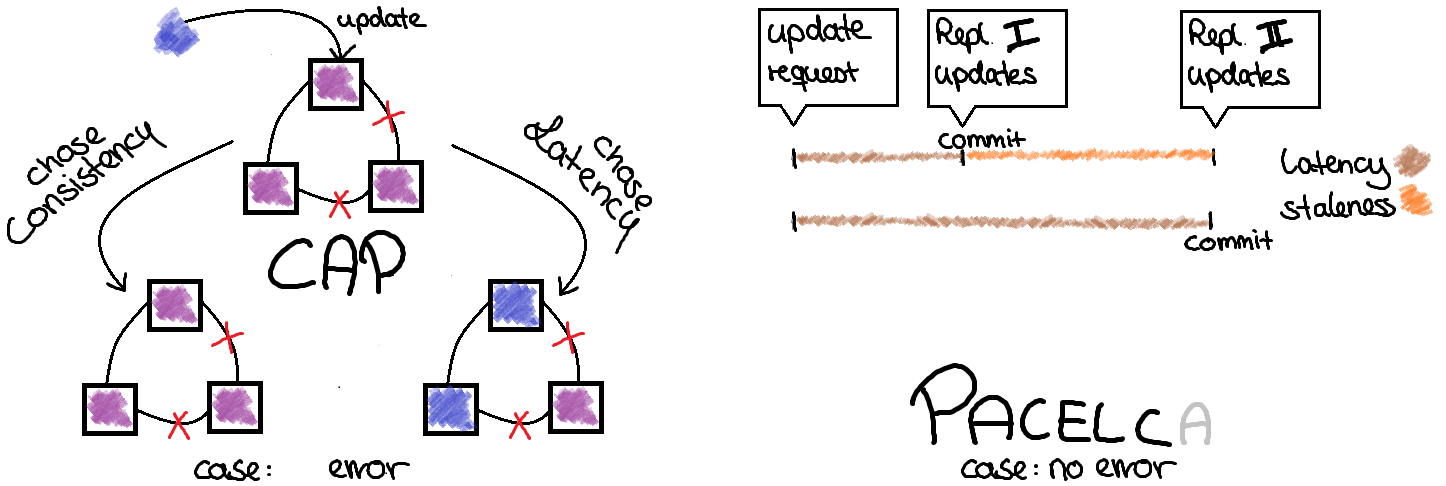 update
chose
Consistency
chose
Latency
CAP
case: error
update
request
Repl. I
updates
Repl. II
updates
commit
latency
staleness
commit
PACELCA
case: no error